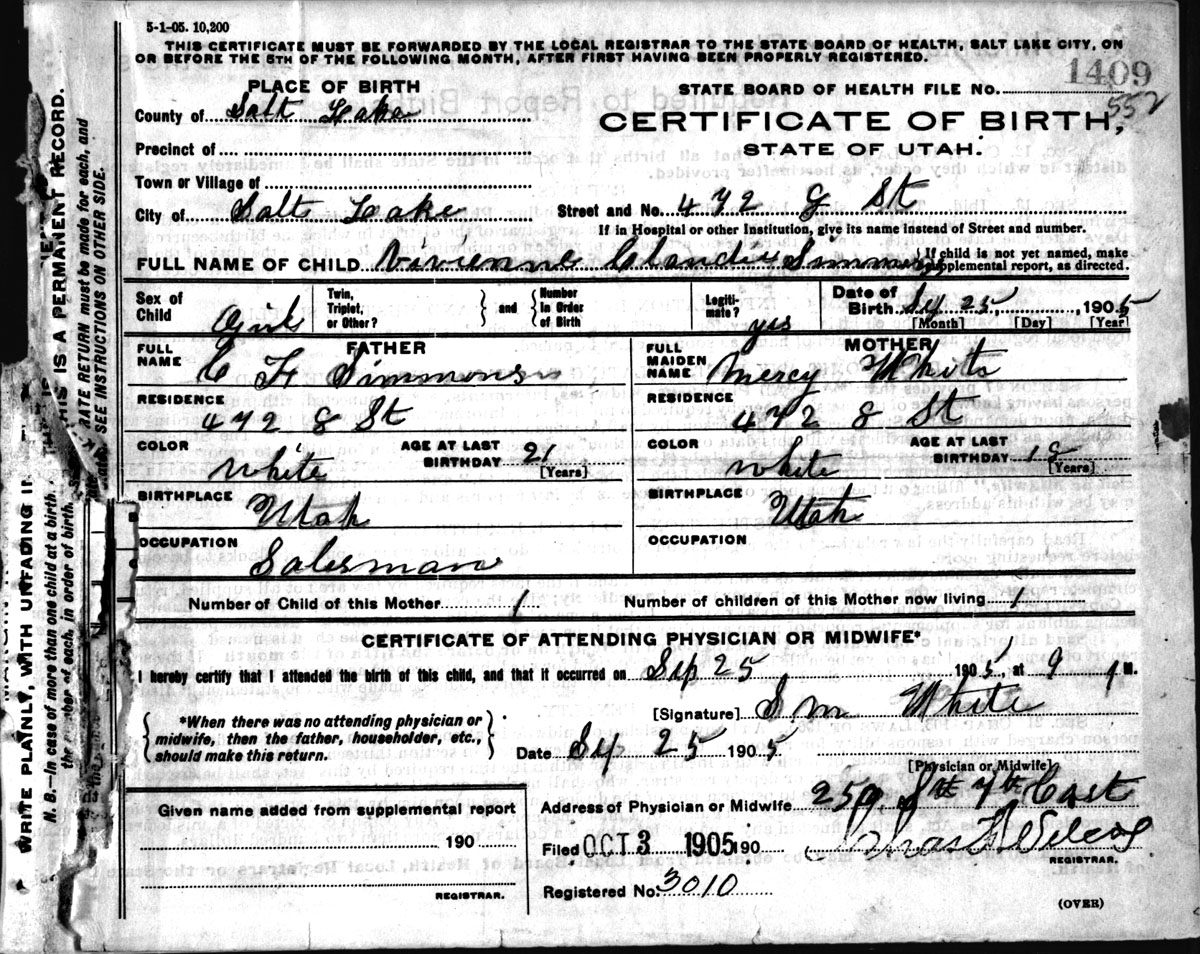 5-1-05. 10,200
THIS CERTIFICATE MUST BE FORWARDED BY THE LOCAL REGISTRAR TO THE STATE BOARD OF HEALTH, SALT LAKE CITY, ON
OR BEFORE THE 5TH OF THE FOLLOWING MONTH, AFTER FIRST HAVING BEEN PROPERLY REGISTERED.
1409
PLACE OF BIRTH
STATE BOARD OF HEALTH FILE No.
552
County of Salt Lake
CERTIFICATE OF BIRTH,
Precinct of
STATE OF UTAH.
Town or Village of
City of Salt Lake Street and No. 472 St
If in Hospital or other Institution, give its name instead of Street and number.
FULL NAME OF CHILD Vivienne Simmons
If child is not yet named, make
supplemental report, as directed.
Sex of Child Girl
Twin, Triplet, or Other? } and { Number in Order of Birth
Legitimate? yes
Date of Birth Sep 25, 1905
[Month] [Day] [Year]
FATHER
FULL NAME C F Simmons
RESIDENCE
472 St
COLOR White
AGE AT LAST BIRTHDAY 21 [Years]
BIRTHPLACE
Utah
OCCUPATION
Salesman
MOTHER
FULL MAIDEN NAME Mercy White
RESIDENCE
472 St
COLOR White
AGE AT LAST BIRTHDAY [Years]
BIRTHPLACE
Utah
OCCUPATION
Number of Child of this Mother 1 Number of children of this Mother now living 1
CERTIFICATE OF ATTENDING PHYSICIAN OR MIDWIFE*
I hereby certify that I attended the birth of this child, and that it occurred on Sep 25 1905, at 9 M.
{ *When there was no attending physician or
midwife, then the father, householder, etc.,
should make this return. }
[Signature] S M White
Date Sep 25 1905
[Physician or Midwife]
Given name added from supplemental report
190
REGISTRAR.
Address of Physician or Midwife 259 Sth 7th East
Filed OCT 3 1905 190
REGISTRAR.
Registered No. 3010
(OVER)
THIS IS A PERMANENT RECORD.
WRITE PLAINLY, WITH UNFADING
N. B.—In case of more than one child at a birth
RATE RETURN must be made for each, and
the number of each, in order of birth.
SEE INSTRUCTIONS ON OTHER SIDE.